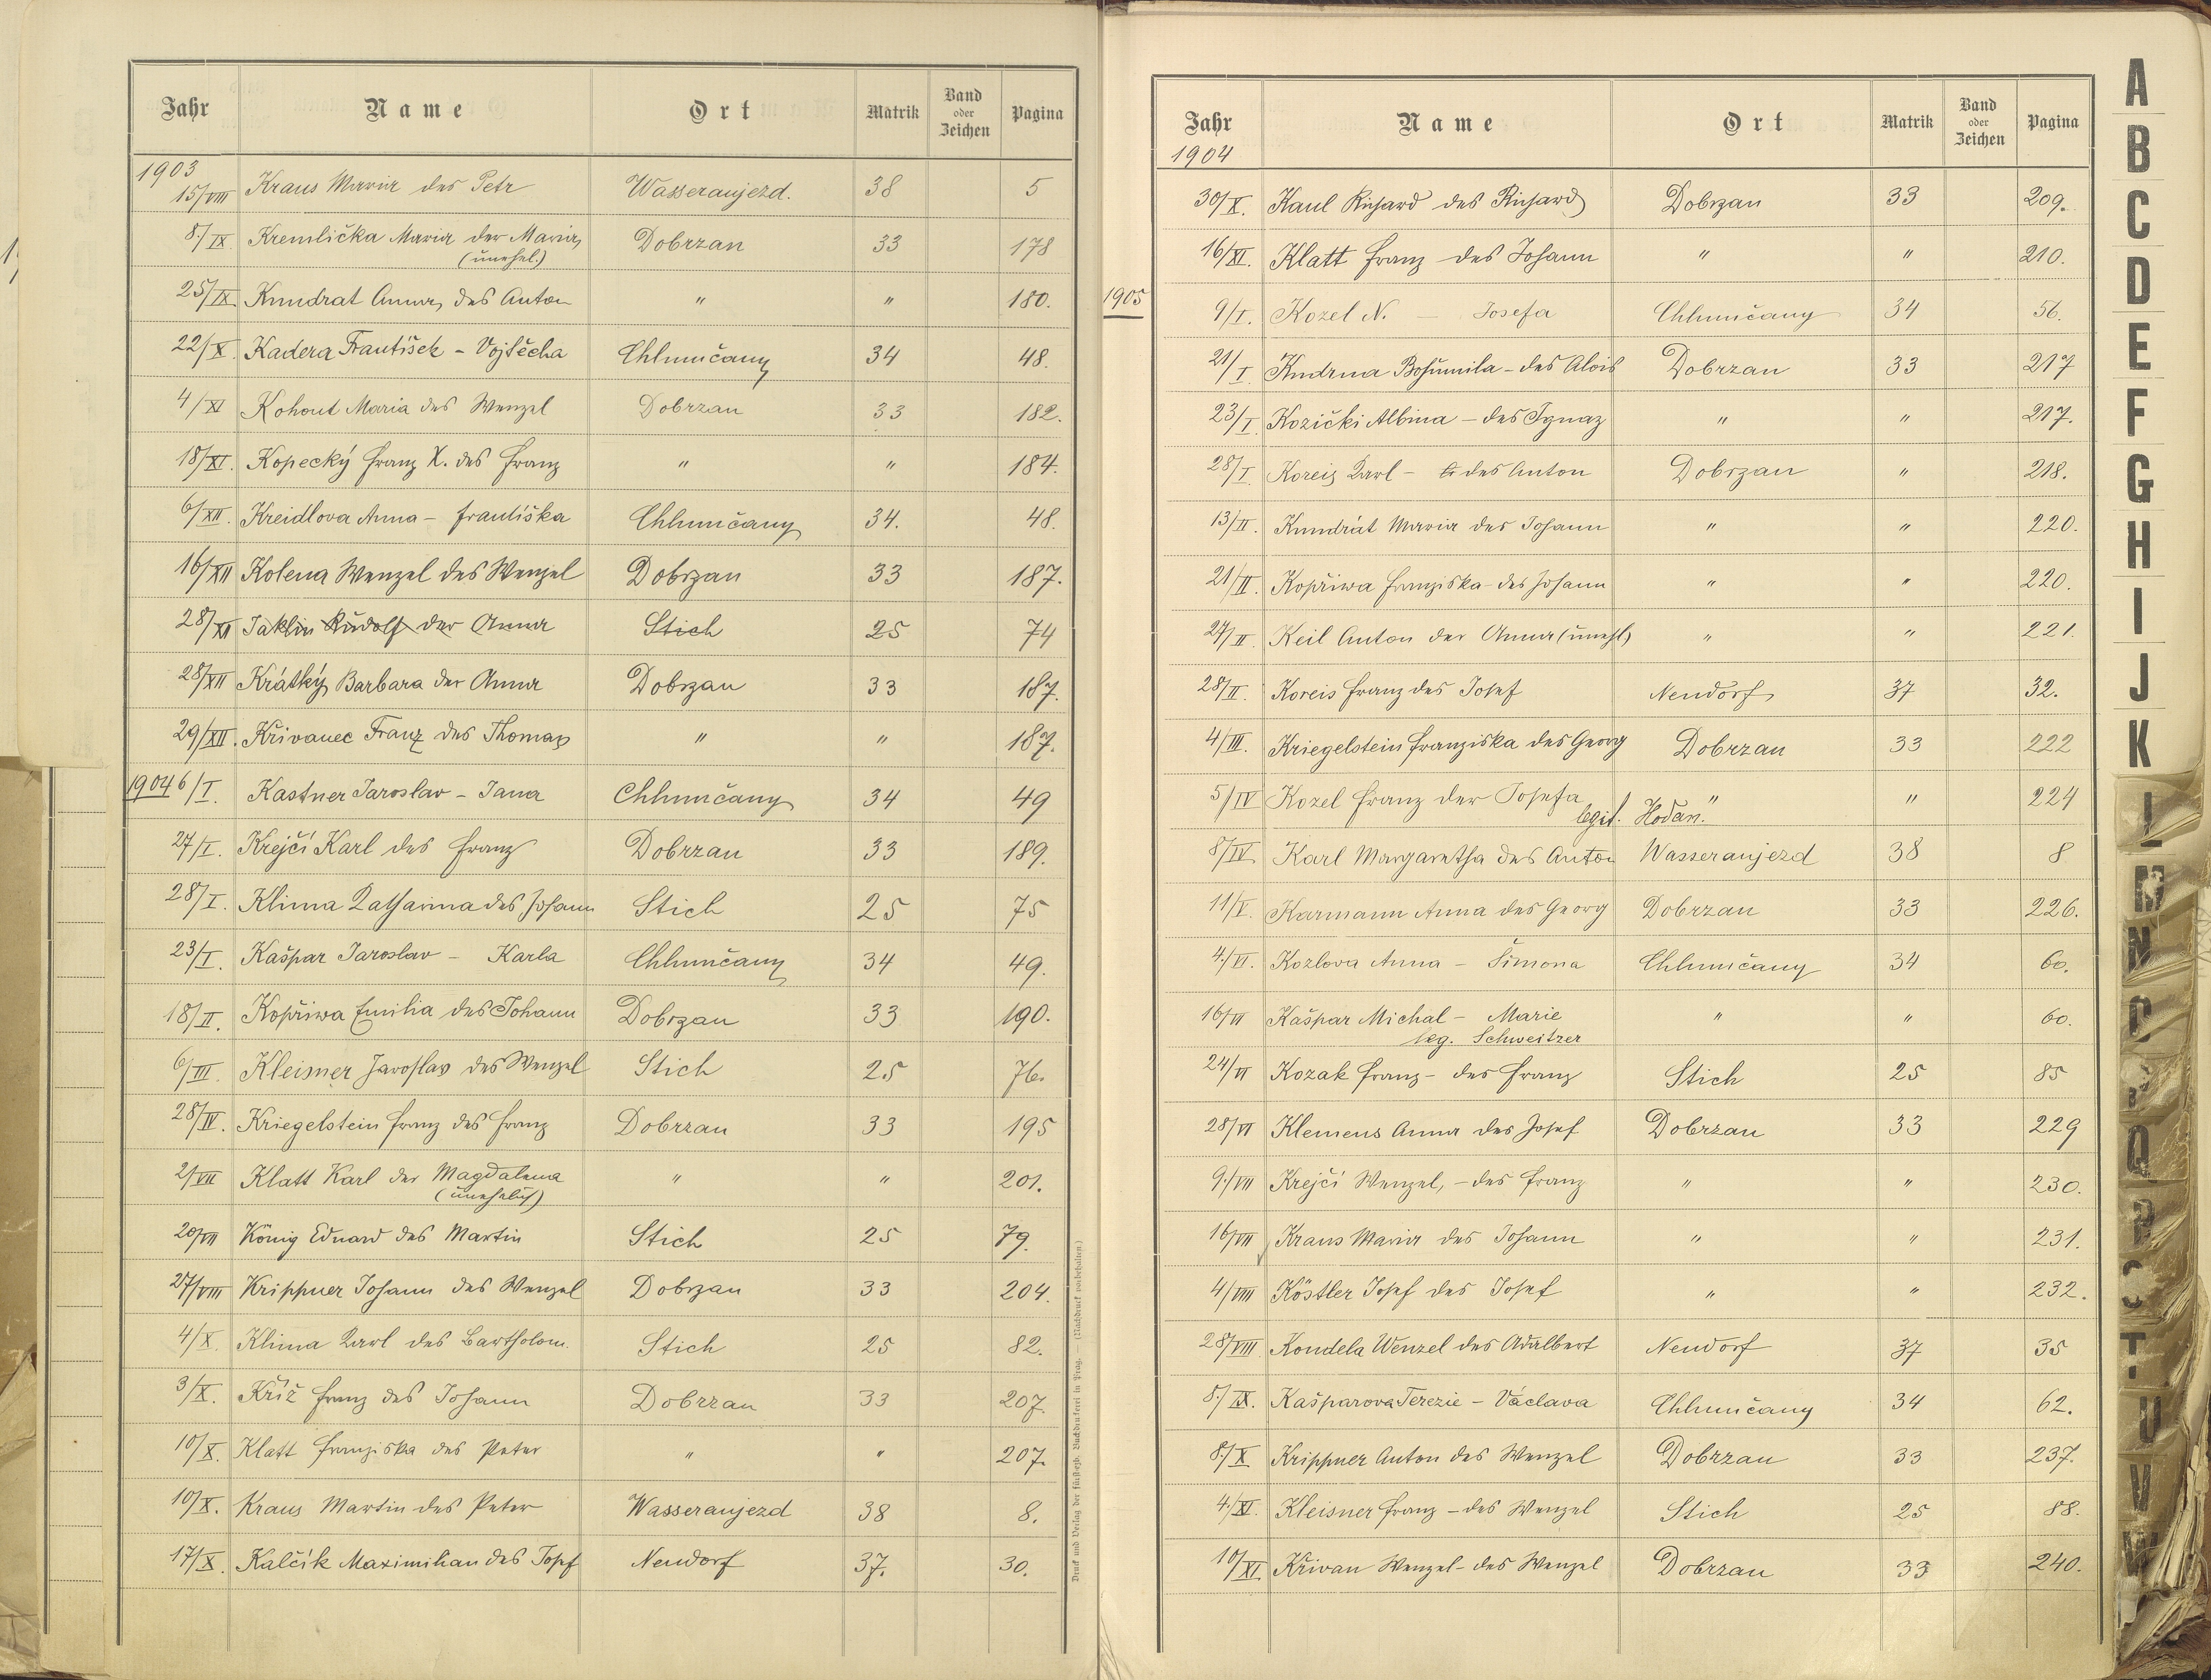 Jahr Name Ort Matrik Band oder Zeichen Pagina
1903
15/VIII Kraus Maria des Petr Wasseraujezd. 38 5
8/IX Kremlička Maria der Maria Dobrzan 33 178
(unehel.)
25/IX. Kundrat Anna, des Anton " " 180.
22/X. Kadera František - Vojtěcha Chlumčany 34 48.
4/XI Kohout Maria des Wenzel Dobrzan 33 182.
18/XI. Kopecký Franz X. des Franz " " 184.
6/XII. Kreidlova Anna - Františka Chlumčany 34. 48.
16/XII Kolena Wenzel des Wenzel Dobrzan 33 187.
28/XI Jaklin Rudolf der Anna Stich 25 74
28/XII Krátký Barbara der Anna Dobrzan 33 187.
29/XII. Křivanec Franz des Thomas " " 187.
1904 6/I. Kastner Jaroslav - Jana Chlumčany 34 49
27/I. Krejčí Karl des Franz Dobrzan 33 189.
28/I. Klima Katharina des Johann Stich 25 75
23/I. Kašpar Jaroslav - Karla Chlumčany 34 49.
18/II. Kopřiwa Emilia des Johann Dobrzan 33 190.
6/III. Kleisner Jaroslav des Wenzel Stich 25 76.
28/IV. Kriegelstein Franz des Franz Dobrzan 33 195
2/VII Klatt Karl der Magdalena " " 201.
(unehelich)
20/VII König Eduard des Martin Stich 25 79.
27/VIII Krippner Johann des Wenzel Dobrzan 33 204.
4/X. Klima Karl des Bartholom. Stich 25 82.
3/X. Kříž Franz des Johann Dobrzan 33 207.
10/X. Klatt Franziska des Peter " " 207.
10/X. Kraus Martin des Peter Wasseraujezd 38 8.
17/X. Kalčik Maximilian des Josef Neudorf 37. 30.
Druck und Verlag der fürsterzb. Buchdruckerei in Prag. — (Nachdruck vorbehalten.)
Jahr Name Ort Matrik Band oder Zeichen Pagina
1904
30/X. Kaul Richard des Richard Dobrzan 33 209.
16/XI. Klatt Franz des Johann " " 210.
1905 9/I. Kozel N. — Josefa Chlumčany 34 56.
21/I Kudrna Bohumila - des Alois Dobrzan 33 217
23/I Kozički Albina - des Ignaz " " 217.
28/I. Koreis Karl - des Anton Dobrzan " 218.
13/II. Kundrát Maria des Johann " " 220.
21/II. Kopřiwa Franziska - des Johann " " 220.
27/II. Keil Anton der Anna (unehl) " " 221.
28/II. Koreis Franz des Josef Neudorf 37 32.
4/III. Kriegelstein Franziska des Georg Dobrzan 33 222
5/IV Kozel Franz der Josefa " " 224
legit. Hodan.
8/IV. Karl Margaretha des Anton Wasseraujezd 38 8
11/V. Karmann Anna des Georg Dobrzan 33 226.
4./VI. Kozlova Anna - Šimona Chlumčany 34 60.
16/VI Kašpar Michal - Marie " " 60.
leg. Schweitzer
24/VI Kozak Franz - des Franz Stich 25 85
28/VI Klemens Anna des Josef Dobrzan 33 229
9./VII Krejčí Wenzel, - des Franz " " 230.
16/VII Kraus Maria des Johann " " 231.
4/VIII Köstler Josef des Josef " " 232.
28/VIII Kondela Wenzel des Adalbert Neudorf 37 35
8./IX. Kašparova Terezie - Václava Chlumčany 34 62.
8./X Krippner Anton des Wenzel Dobrzan 33 237.
4./XI. Kleisner Franz - des Wenzel Stich 25 88.
10/XI. Křivan Wenzel - des Wenzel Dobrzan 33 240.
A
B
C
D
E
F
G
H
I
J
K
L
M
N
O
P
Q
R
S
T
U
V
W